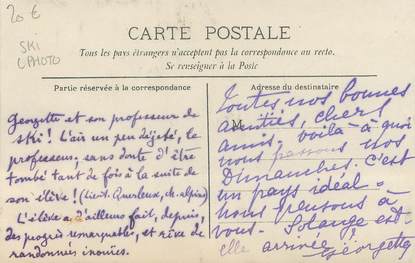 20 €
SKI
CPHOTO
CARTE POSTALE
Tous les pays étrangers n'acceptent pas la correspondance au recto.
Se renseigner à la Poste
Partie réservée à la correspondance
Adresse du destinataire
M
Georgette et son professeur de
ski! L'air un peu déjeté, le
professeur, sans doute d'être
tombé tant de fois à la suite de
son élève! (Lieut. Querleux, ch. alpins)
L'élève a, d'ailleurs fait, depuis,
des progrès remarquables, et rêve de
randonnées inouïes.
Toutes nos bonnes
amitiés, chers
amis, voilà à quoi
nous passons nos
Dimanches. C'est
un pays idéal.
Nous pensons à
vous. Solange est-
elle arrivée? Georgette